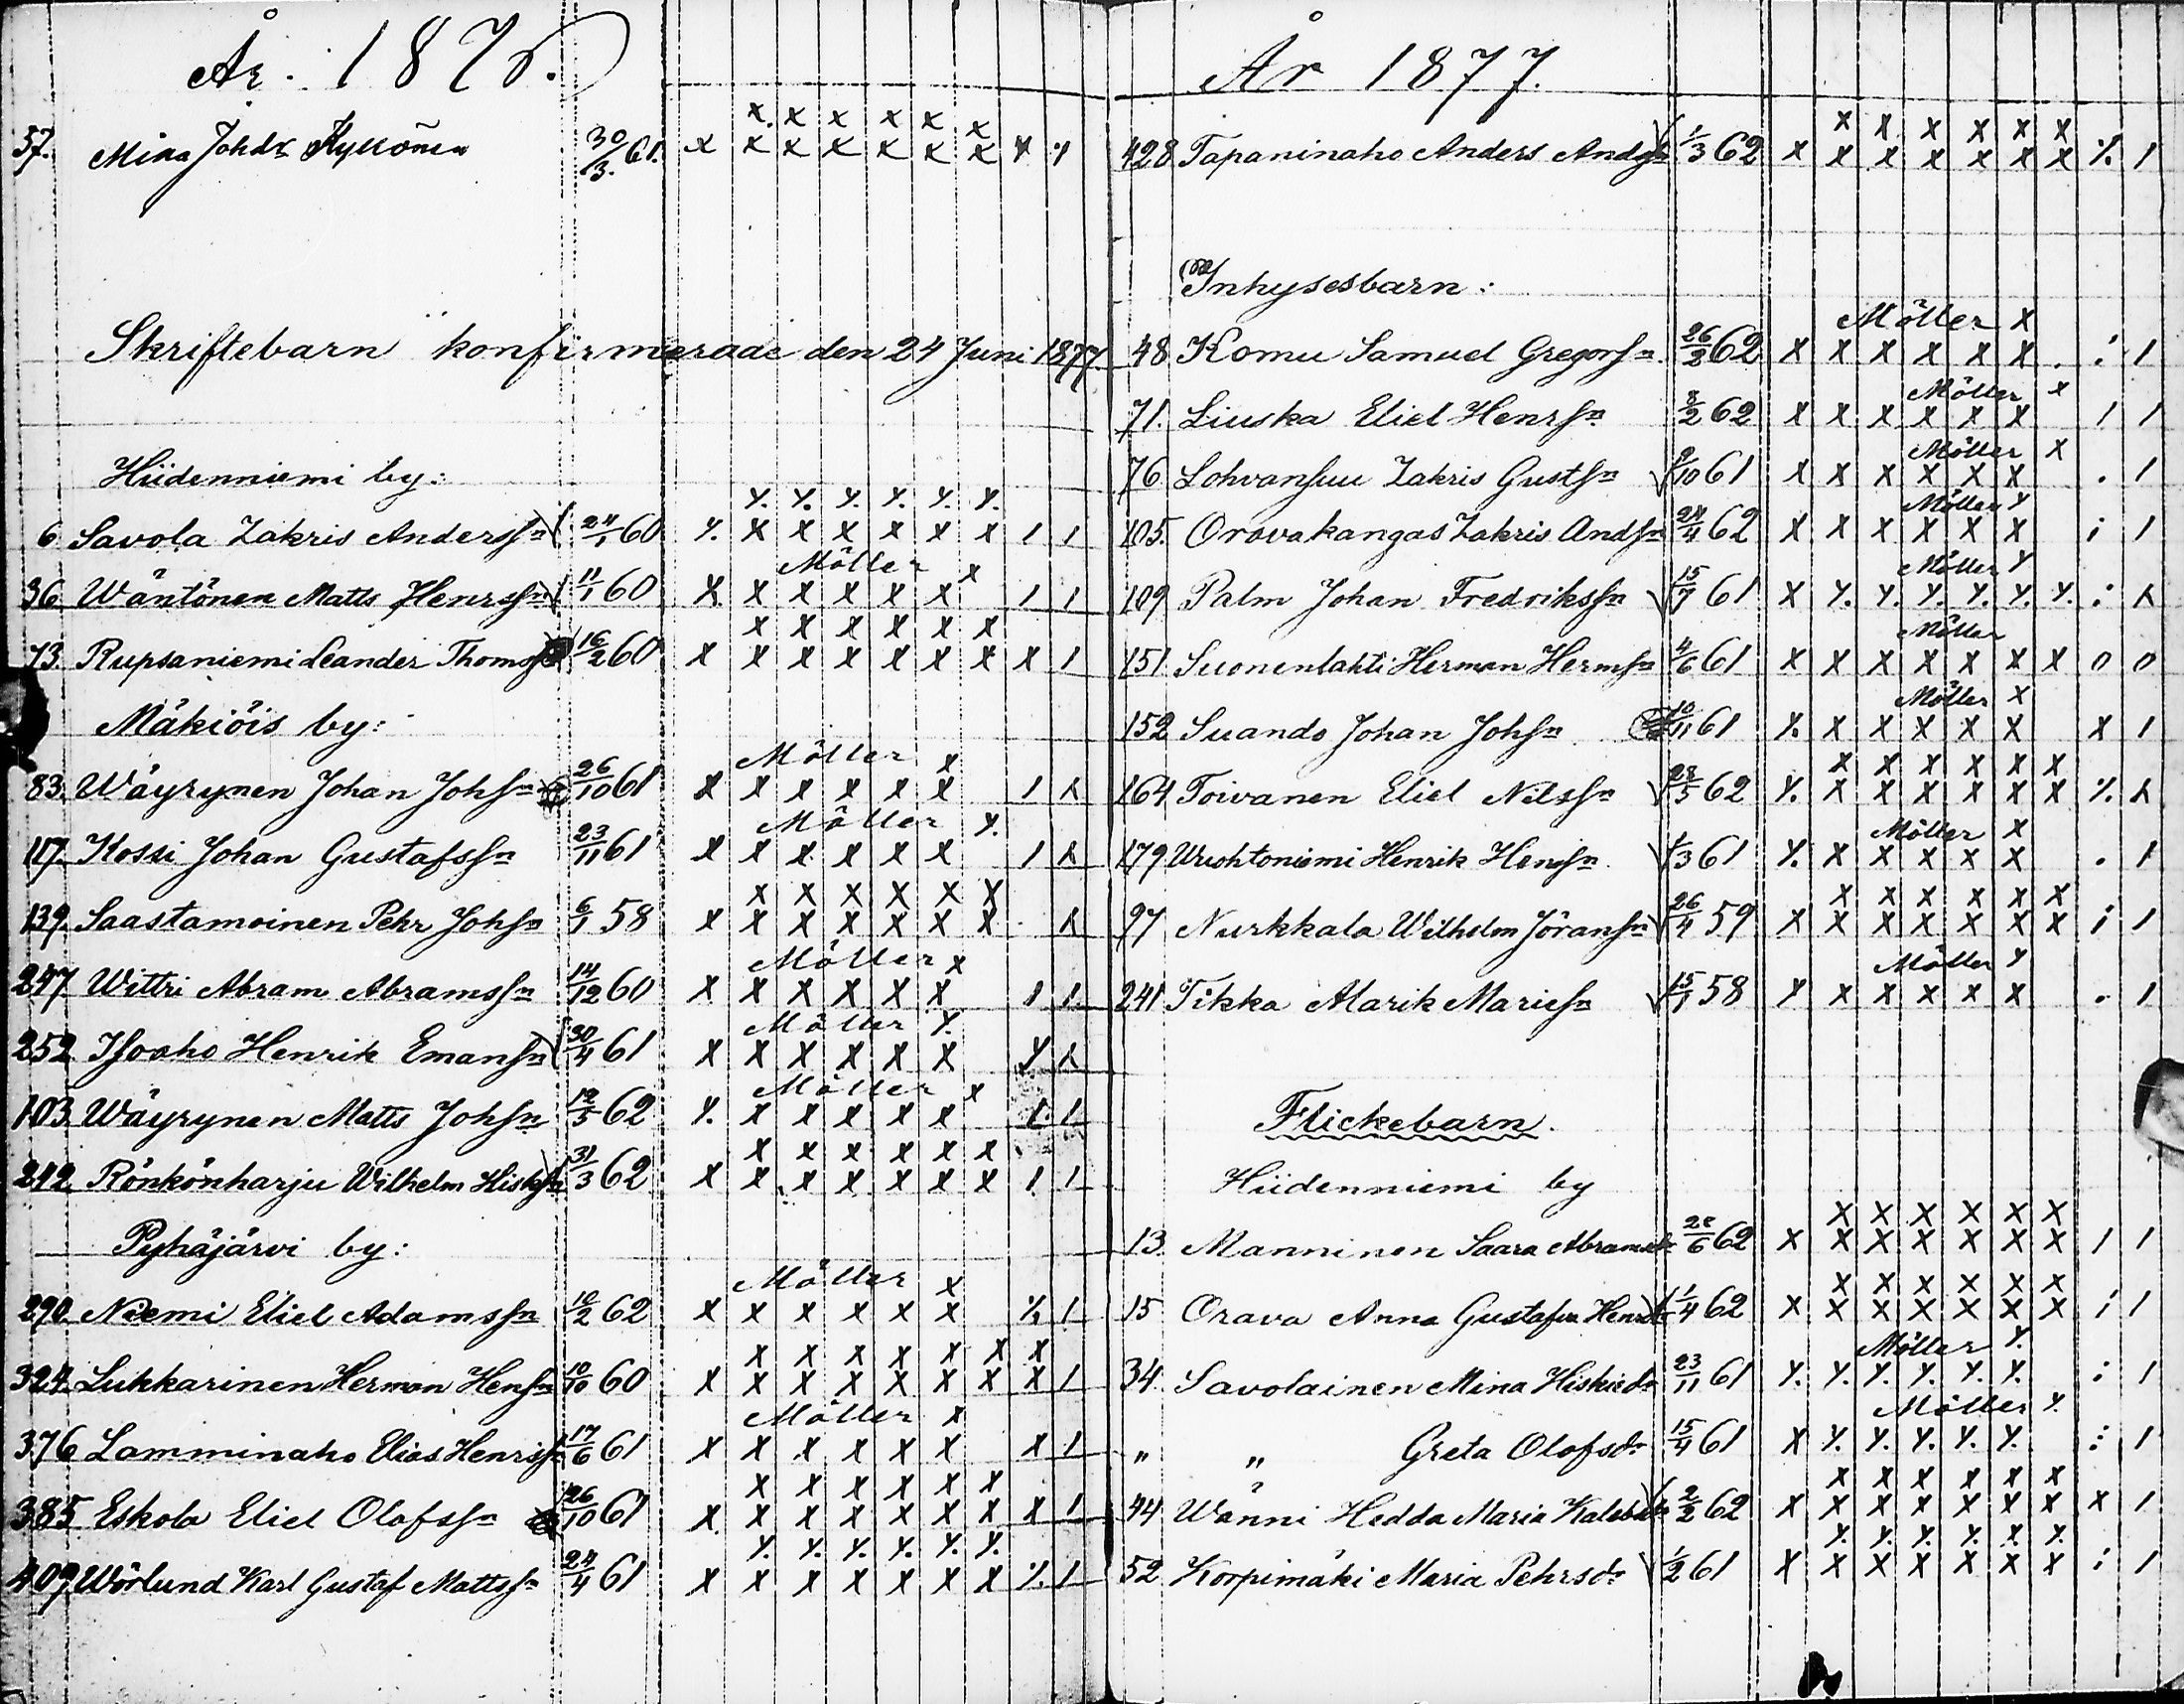 År. 1876.
57. Mina Johdr Kyllönen 30/3. 61. x x x x x x x x x
x x x x x x
Skriftebarn konfirmerade den 24 Juni 1877
Hiidenniemi by:
6 Savola Zakris Andersson 24/1 60 x x x x x x x 1 1
36 Wäntönen Matts Henrsson 11/1 60 Möller x x x x x x x 1 1
73. Rupsaniemi Leander Thomss 16/2 60 x x x x x x x x 1
Mäkiöis by:
83. Wäyrynen Johan Johsn 26/10 61 Möller x x x x x x x 1
117. Kossi Johan Gustafssn 23/11 61 Möller x x x x x x x 1
139. Saastamoinen Pehr Johsn 6/1 58 x x x x x x x
247. Wittri Abram Abramssn 14/12 60 Möller x x x x x x x 1 1
252 Isoaho Henrik Emansn 30/4 61 Möller x x x x x x x
103. Wäyrynen Matts Johsn 12/5 62 Möller x x x x x x x 1 1
242. Rönkönharju Wilhelm Hisksn 31/3 62 x x x x x x x 1 1
Pyhäjärvi by:
290. Niemi Eliel Adamssn 10/2 62 Möller x x x x x x x 1
324. Lukkarinen Herman Hensn 10/10 60 x x x x x x x x 1
376 Lamminaho Elias Henrisn 17/6 61 Möller x x x x x x x x 1
385 Eskola Eliel Olofssn 26/10 61 x x x x x x x x 1
409 Wörlund Karl Gustaf Mattssn 24/4 61 x x x x x x x 1
År 1877.
428 Tapaninaho Anders Andsn 1/3 62 x x x x x x x 1
Inhysesbarn:
48. Komu Samuel Gregorsn 26/2 62 Möller x x x x x x x 1
71. Liuska Eliel Henrsn 8/2 62 Möller x x x x x x x 1 1
76 Lohvansuu Zakris Gustsn 9/10 61 Möller x x x x x x x 1
105. Oravakangas Zakris Andsn 24/4 62 Möller x x x x x x x 1
109 Palm Johan Fredrikssn 15/7 61 Möller x x x x x x x
151 Suonenlahti Herman Hermsn 4/6 61 Möller x x x x x x x 0 0
152 Suando Johan Johsn 10/11 61 Möller x x x x x x x x 1
164 Toivanen Eliel Nilssn 28/5 62 x x x x x x x
179 Wuohtoniemi Henrik Hensn 1/3 61 Möller x x x x x x x 1
97 Nurkkala Wilhelm Göransn 26/4 59 x x x x x x x 1
241 Tikka Alarik Mariesn 15/1 58 Möller x x x x x x x 1
Flickebarn.
Hiidenniemi by
13. Manninen Saara Abramsdr 28/6 62 x x x x x x x 1 1
15 Orava Anna Gustafva Henrdr 1/4 62 x x x x x x x 1
34. Savolainen Mina Hiskiedr 23/11 61 Möller x x x x x x x 1
" " Greta Olofsdr 15/4 61 Möller x x x x x x x 1
44 Wänni Hedda Maria Kalebdr 2/2 62 x x x x x x x x 1
52 Korpimäki Maria Pehrsdr 1/2 61 x x x x x x x 1